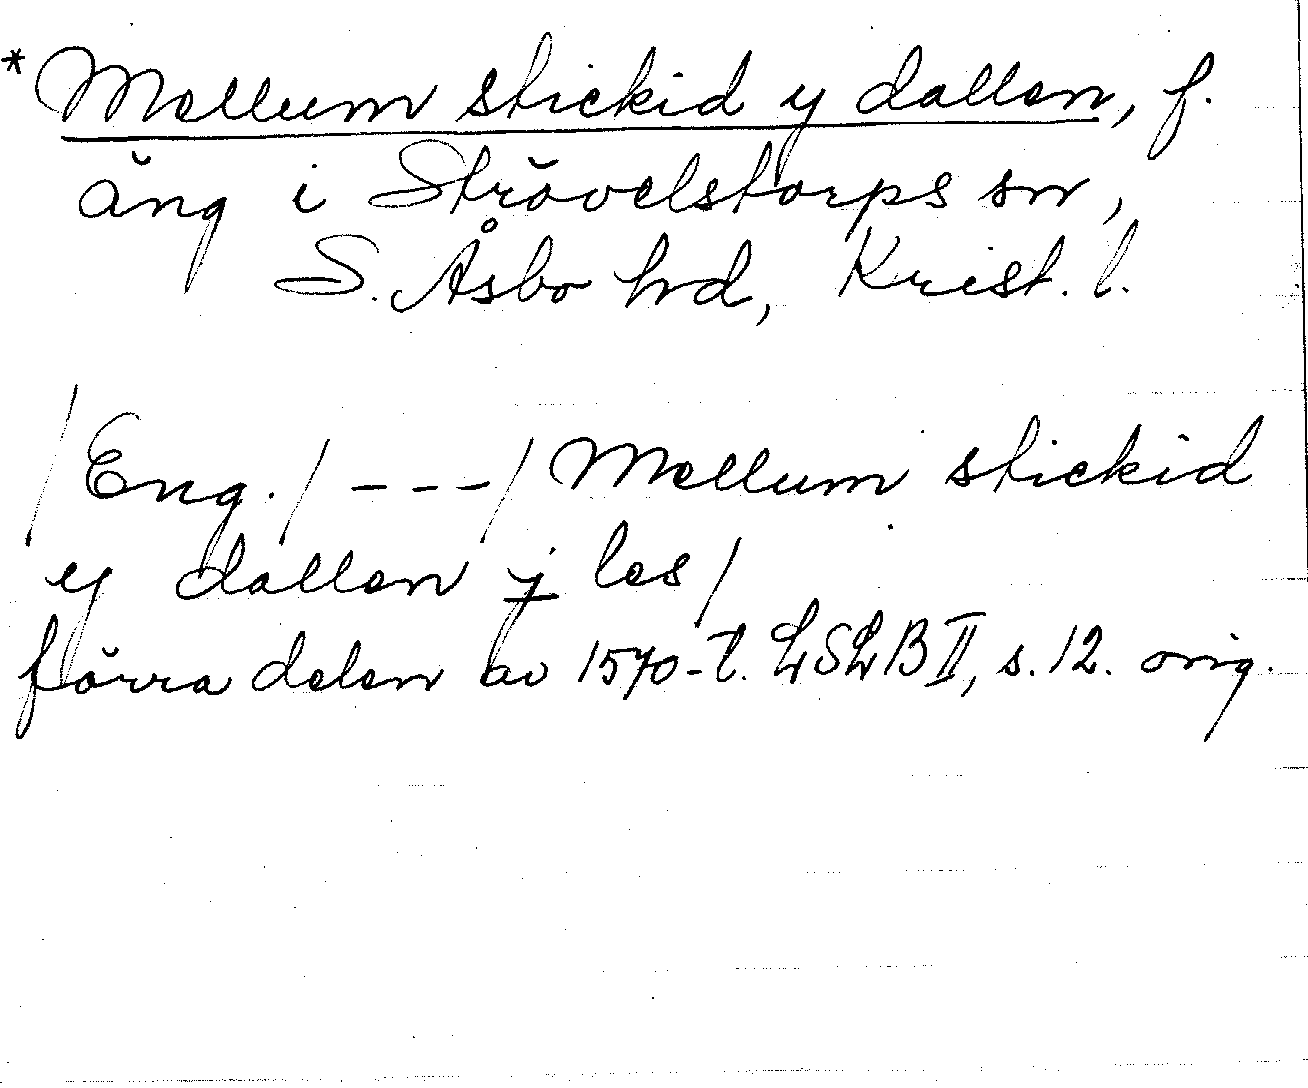 *Mellum stickid y dallen, f.
äng i Strövelstorps sn,
S. Åsbo hd, Krist. l.
/Eng./ --- / Mellum stickid
y dallen j les /
förra delen av 1570-t. LSLB II, s. 12. orig.